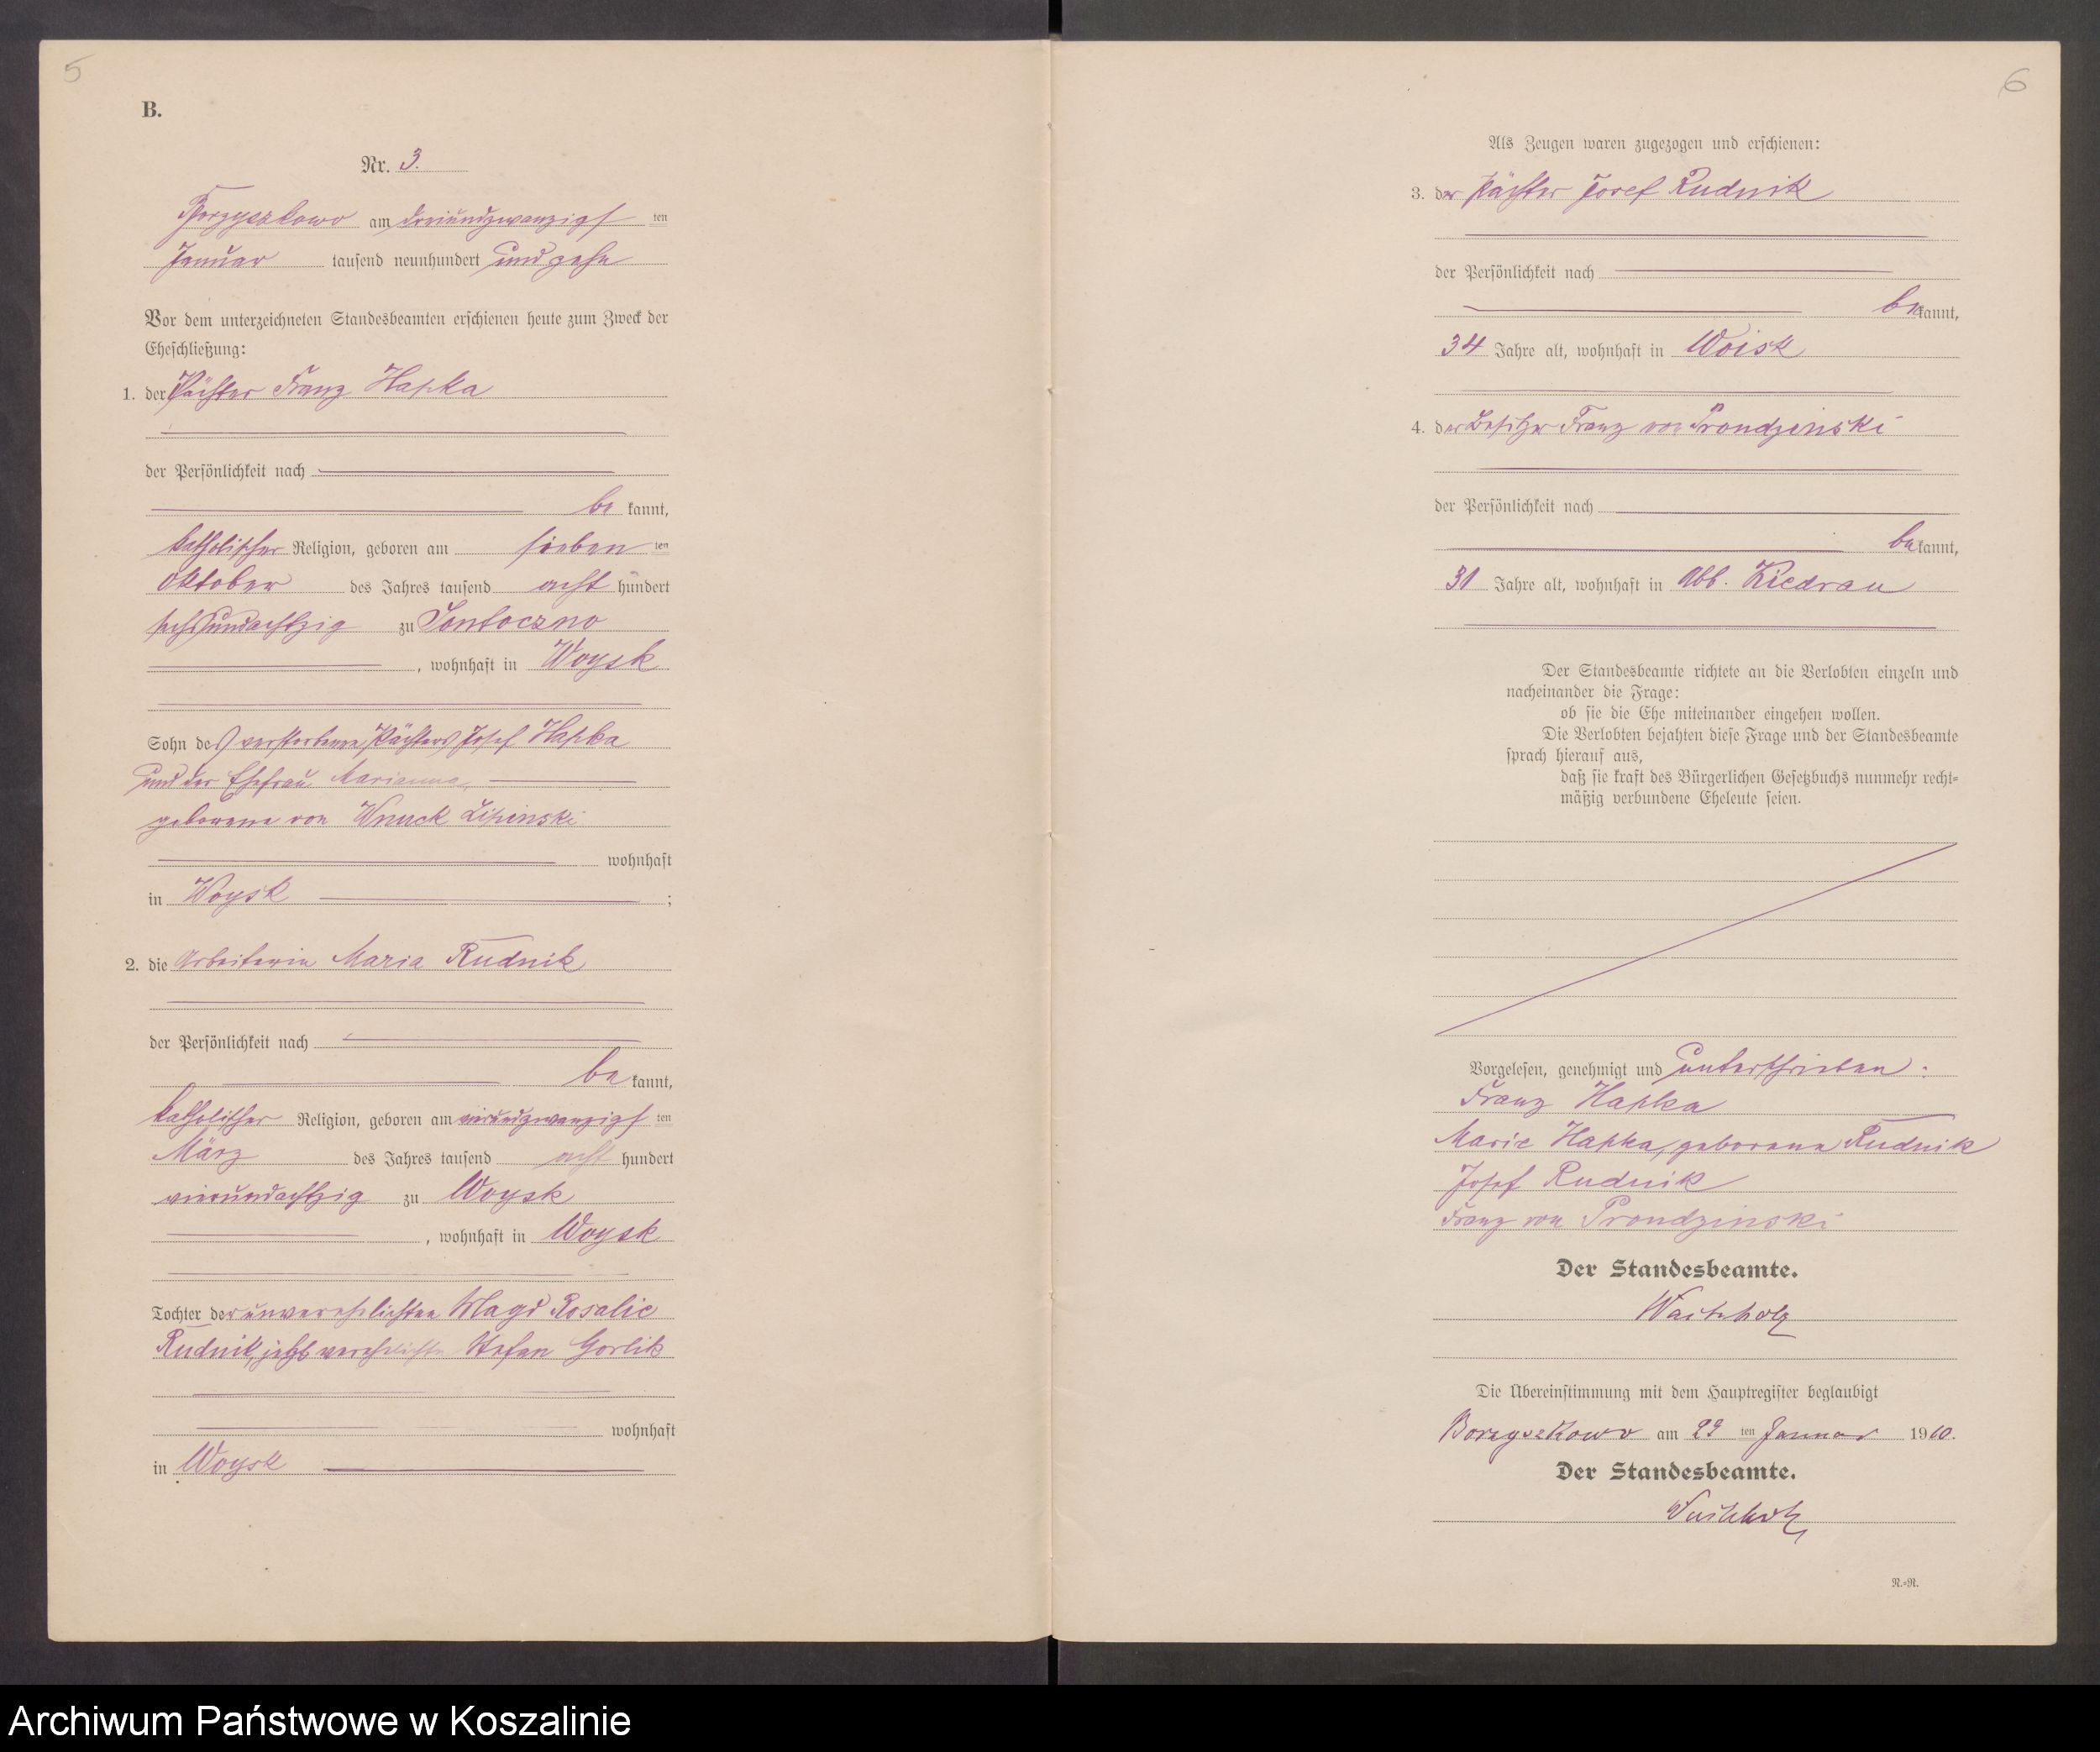 5
B.
Nr. 3.
Borzyszkowo am dreiundzwanzigsten
Januar tausend neunhundert und zehn
Vor dem unterzeichneten Standesbeamten erschienen heute zum Zweck der
Eheschließung:
1. der Pächter Franz Hapka
der Persönlichkeit nach
be kannt,
katholischer Religion, geboren am sieben ten
Oktober des Jahres tausend acht hundert
sechsundachtzig zu Sontoczno
, wohnhaft in Woysk
Sohn des verstorbenen Pächters Josef Hapka
und der Ehefrau Marianna,
geborene von Wnuck Lipinski
wohnhaft
in Woysk ;
2. die Arbeiterin Maria Rudnik
der Persönlichkeit nach
be kannt,
katholischer Religion, geboren am vierundzwanzigsten
März des Jahres tausend acht hundert
vierundachtzig zu Woysk
, wohnhaft in Woysk
Tochter der unverehelichten Magd Rosalie
Rudnik, jetzt verehelichte Stefan Gorlik
wohnhaft
in Woysk
6
Als Zeugen waren zugezogen und erschienen:
3. der Pächter Josef Rudnik
der Persönlichkeit nach
be kannt,
34 Jahre alt, wohnhaft in Woisk
4. der Besitzer Franz von Prondzinski
der Persönlichkeit nach
be kannt,
31 Jahre alt, wohnhaft in Abb. Kiedrau
Der Standesbeamte richtete an die Verlobten einzeln und
nacheinander die Frage:
ob sie die Ehe miteinander eingehen wollen.
Die Verlobten bejahten diese Frage und der Standesbeamte
sprach hierauf aus,
daß sie kraft des Bürgerlichen Gesetzbuchs nunmehr recht-
mäßig verbundene Eheleute seien.
Vorgelesen, genehmigt und unterschrieben:
Franz Hapka
Marie Hapka, geborene Rudnik
Josef Rudnik
Franz von Prondzinski
Der Standesbeamte.
Die Übereinstimmung mit dem Hauptregister beglaubigt
Borzyszkowo am 23 ten Januar 1910.
Der Standesbeamte.
R.=R.
Archiwum Państwowe w Koszalinie